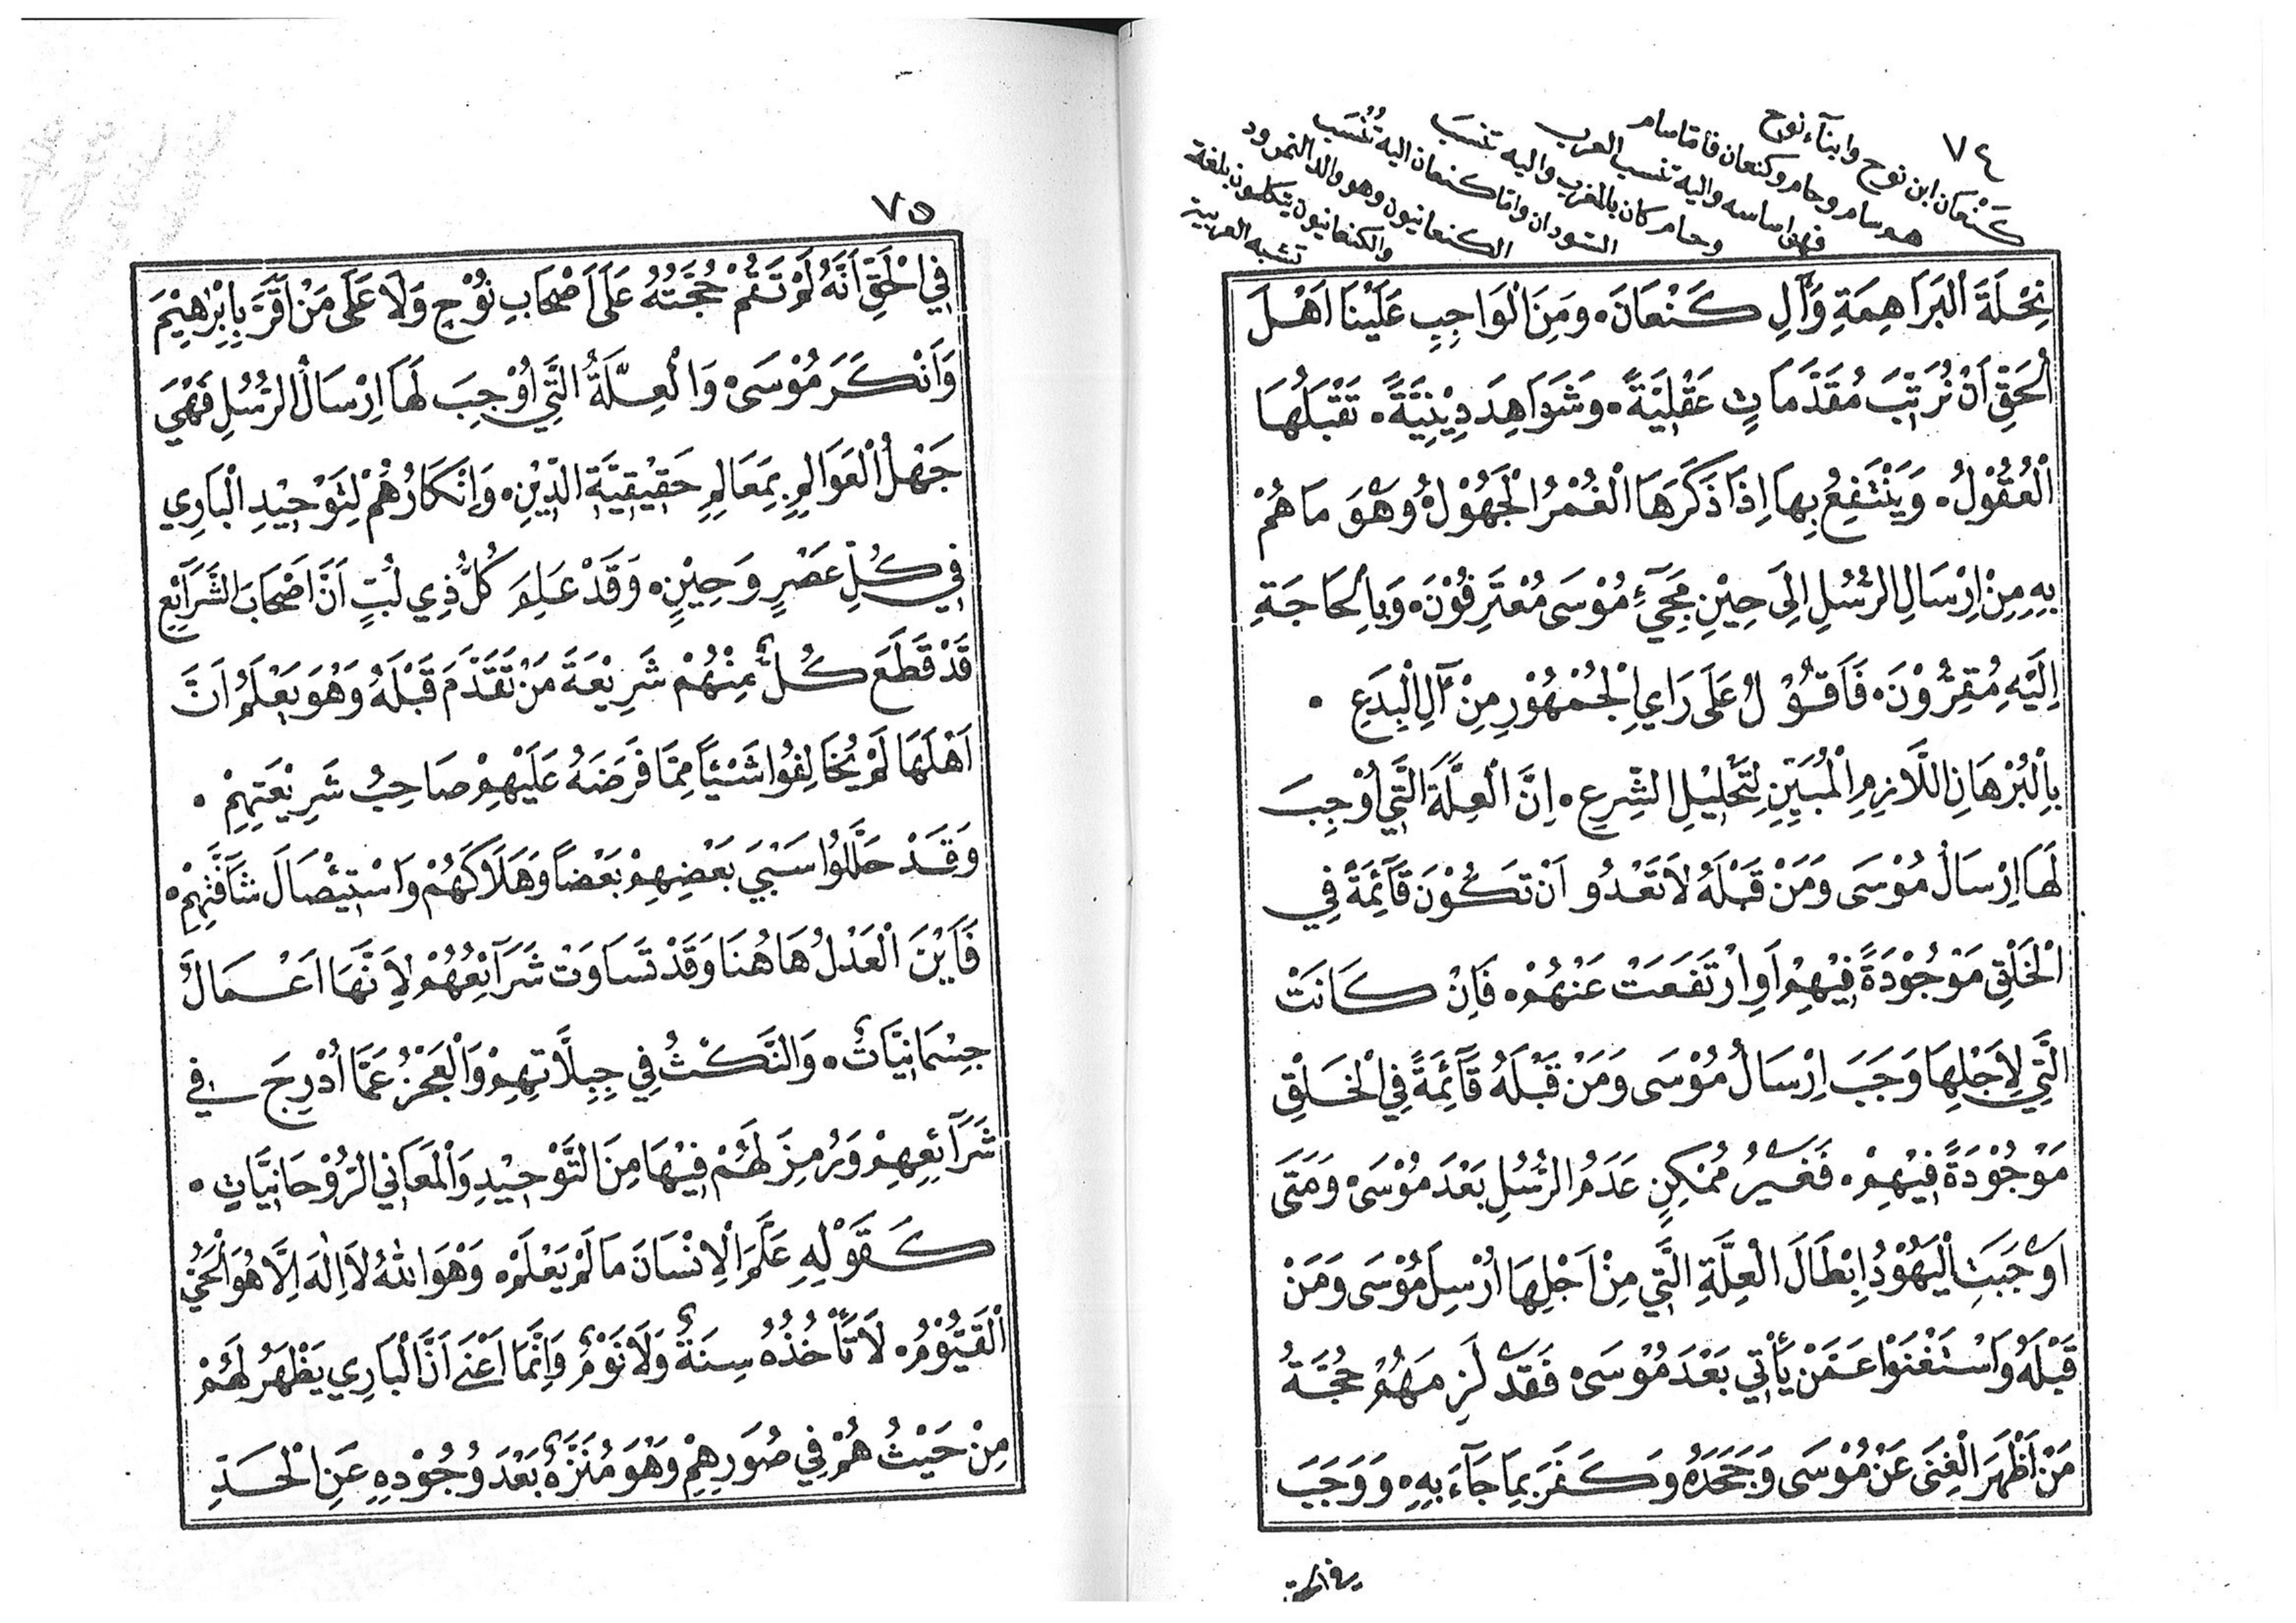 ٧٤
كَنْعَان ابن نوح وابنآء نوح
هو سام وحام وكنعان فامّا سام
فهو اساسه واليه تنسب العرب
وحام كان بالمغرب واليه تنسب
السودان وامّا كنعان اليه تُنْسَب
الكنعانيون وهو والد النمرود
والكنعانيون يتكلمون بلغة
تشبه العربية
نِحْلَةَ الْبَرَاهِمَةِ وَآلِ كَنْعَانَ ۰ وَمِنَ الْوَاجِبِ عَلَيْنَا اَهْلَ
الْحَقِّ اَنْ نُرَتِّبَ مُقَدَّمَاتٍ عَقْلِيَّةً ۰ وَشَوَاهِدَ دِيْنِيَّةً ۰ تَقْبَلُهَا
الْعُقُوْلُ ۰ وَيَنْتَفِعُ بِهَا اِذَا ذَكَرَهَا الْغُمْرُ الْجَهُوْلُ ۰ وَهْوَ مَا هُمْ
بِهِ مِنْ اِرْسَالِ الرُّسُلِ اِلَى حِيْنِ مَجِيْءِ مُوْسَى مُعْتَرِفُوْنَ ۰ وَبِالْحَاجَةِ
اِلَيْهِ مُقِرُّوْنَ ۰ فَاَقُوْلُ عَلَى رَايِ الْجُمْهُوْرِ مِنْ آلِ الْبِدَعِ ۰
بِالْبُرْهَانِ اللَّازِمِ الْمُبَيِّنِ لِتَحْلِيْلِ الشَّرِعِ ۰ اِنَّ الْعِلَّةَ الَّتِي اُوْجِبَ
لَهَا اِرْسَالُ مُوْسَى وَمَنْ قَبْلَهُ لاَ تَعْدُو اَنْ تَكُوْنَ قَآئِمَةً فِي
الْخَلْقِ مَوْجُوْدَةً فِيْهِمْ اَوِ ارْتَفَعَتْ عَنْهُمْ ۰ فَاِنْ كَانَتْ
الَّتِي لِاَجْلِهَا وَجَبَ اِرْسَالُ مُوْسَى وَمَنْ قَبْلَهُ قَآئِمَةً فِي الْخَلْقِ
مَوْجُوْدَةً فِيْهِمْ ۰ فَغَيْرُ مُمْكِنٍ عَدَمُ الرُّسُلِ بَعْدَ مُوْسَى ۰ وَمَتَى
اَوْجَبَتِ الْيَهُوْدُ اِبْطَالَ الْعِلَّةِ الَّتِي مِنْ اَجْلِهَا اُرْسِلَ مُوْسَى وَمَنْ
قَبْلَهُ وَاسْتَغْنَوْا عَمَّنْ يَأْتِي بَعْدَ مُوْسَى ۰ فَقَدْ لَزِمَهُمْ حُجَّةُ
مَنْ اَظْهَرَ الْغِنَى عَنْ مُوْسَى وَجَحَدَهُ وَكَفَرَ بِمَا جَآءَ بِهِ ۰ وَوَجَبَ
في الحق
٧٥
فِي الْحَقِّ اَنَّهُ لَمْ تَقُمْ حُجَّتُهُ عَلَى اَصْحَابِ نُوْحٍ وَلاَ عَلَى مَنْ اَقَرَّ بِاِبْرٰهِيْمَ
وَاَنْكَرَ مُوْسَى ۰ وَالْعِلَّةُ الَّتِي اُوْجِبَ لَهَا اِرْسَالُ الرُّسُلِ فَهْيَ
جَهْلُ الْعَوَالِمِ بِمَعَالِمِ حَقِيْقِيَّةِ الدِّيْنِ ۰ وَاِنْكَارُهُمْ لِتَوْحِيْدِ الْبَارِي
فِي كُلِّ عَصْرٍ وَحِيْنٍ ۰ وَقَدْ عَلِمَ كُلُّ ذِي لُبٍّ اَنَّ اَصْحَابَ الشَّرَآئِعِ
قَدْ قَطَعَ كُلٌّ مِنْهُمْ شَرِيْعَةَ مَنْ تَقَدَّمَ قَبْلَهُ وَهُوَ يَعْلَمُ اَنَّ
اَهْلَهَا لَمْ يُخَالِفُوا شَيْئاً مِمَّا فَرَضَهُ عَلَيْهِمْ صَاحِبُ شَرِيْعَتِهِمْ ۰
وَقَدْ حَلَّلُوا سَبْيَ بَعْضِهِمْ بَعْضاً وَهَلاَكَهُمْ وَاسْتِيْصَالَ شَآفَتِهِمْ ۰
فَاَيْنَ الْعَدْلُ هَاهُنَا وَقَدْ تَسَاوَتْ شَرَآئِعُهُمْ لِاَنَّهَا اَعْمَالٌ
جِسْمَانِيَّاتٌ ۰ وَالنَّكْثُ فِي جِبِلاَّتِهِمْ وَالْعَجْزُ عَمَّا اُدْرِجَ فِي
شَرَآئِعِهِمْ وَرُمِزَ لَهُمْ فِيْهَا مِنَ التَّوْحِيْدِ وَالْمَعَانِي الرُّوْحَانِيَّاتِ ۰
كَقَوْلِهِ عَلَّمَ الْاِنْسَانَ مَا لَمْ يَعْلَمْ ۰ وَهْوَ اللهُ لاَ اِلٰهَ اِلَّا هُوَ الْحَيُّ
الْقَيُّوْمُ ۰ لاَ تَأْخُذُهُ سِنَةٌ وَلاَ نَوْمٌ وَاِنَّمَا اَعْنَى اَنَّ الْبَارِي يَظْهَرُ لَهُمْ
مِنْ حَيْثُ هُمْ فِي صُوَرِهِمْ وَهْوَ مُنَزَّهٌ بَعْدَ وُجُوْدِهِ عَنِ الْحَدِّ